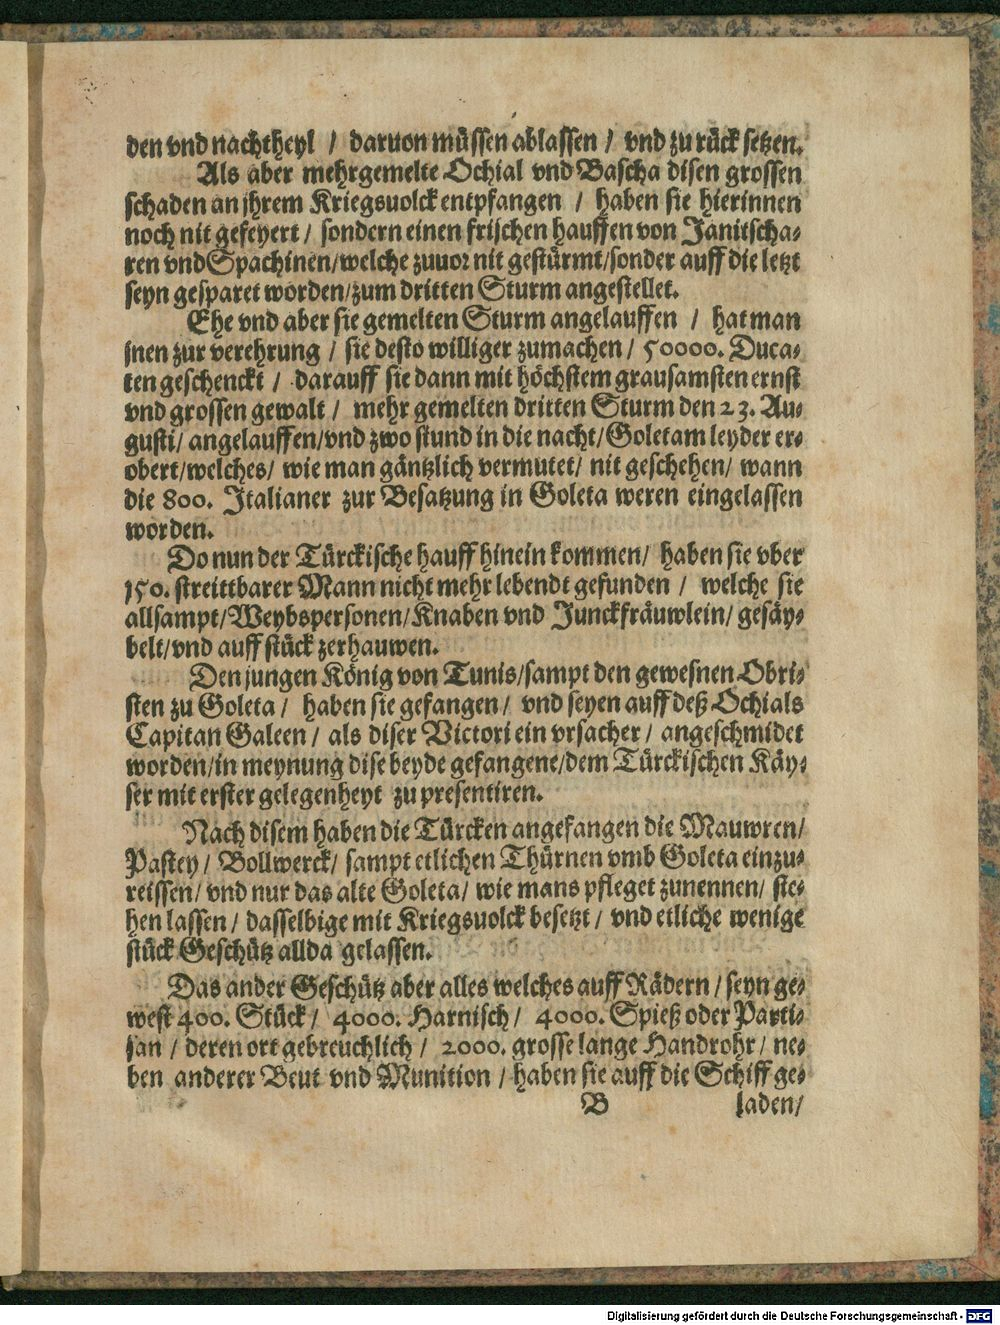 den vnd nachtheyl / daruon müssen ablassen / vnd zu rück setzen.
Als aber mehrgemelte Ochial vnd Bascha disen grossen
schaden an jhrem Kriegsuolck entpfangen / haben sie hierinnen
noch nit gefeyert / sondern einen frischen hauffen von Janitscha⸗
ren vnd Spachinen/welche zuuor nit gestürmt/sonder auff die letzt
seyn gesparet worden/zum dritten Sturm angestellet.
Ehe vnd aber sie gemelten Sturm angelauffen / hat man
jnen zur verehrung / sie desto williger zumachen / 50000. Duca⸗
ten geschenckt / darauff sie dann mit höchstem grausamsten ernst
vnd grossen gewalt / mehr gemelten dritten Sturm den 23. Au⸗
gusti/ angelauffen/vnd zwo stund in die nacht/Goletam leyder er⸗
obert/welches/ wie man gäntzlich vermutet/ nit geschehen/ wann
die 800. Italianer zur Besatzung in Goleta weren eingelassen
worden.
Do nun der Türckische hauff hinein kommen/ haben sie vber
150. streittbarer Mann nicht mehr lebendt gefunden / welche sie
allsampt/Weybspersonen/Knaben vnd Junckfräuwlein/ gesäy⸗
belt/vnd auff stück zerhauwen.
Den jungen König von Tunis/sampt den gewesnen Obri⸗
sten zu Goleta / haben sie gefangen / vnd seyen auff deß Ochials
Capitan Galeen / als diser Victori ein vrsacher / angeschmidet
worden/in meynung dise beyde gefangene/dem Türckischen Käy⸗
ser mit erster gelegenheyt zu presentiren.
Nach disem haben die Türcken angefangen die Mauwren/
Pastey/ Bollwerck/ sampt etlichen Thürnen vmb Goleta einzu⸗
reissen/ vnd nur das alte Goleta/ wie mans pfleget zunennen/ ste⸗
hen lassen / dasselbige mit Kriegsuolck besetzt / vnd etliche wenige
stück Geschütz allda gelassen.
Das ander Geschütz aber alles welches auff Rädern / seyn ge⸗
west 400. Stück / 4000. Harnisch / 4000. Spieß oder Parti⸗
san / deren ort gebreuchlich / 2000. grosse lange Handrohr / ne⸗
ben anderer Beut vnd Munition / haben sie auff die Schiff ge⸗
B laden/
Digitalisierung gefördert durch die Deutsche Forschungsgemeinschaft - DFG